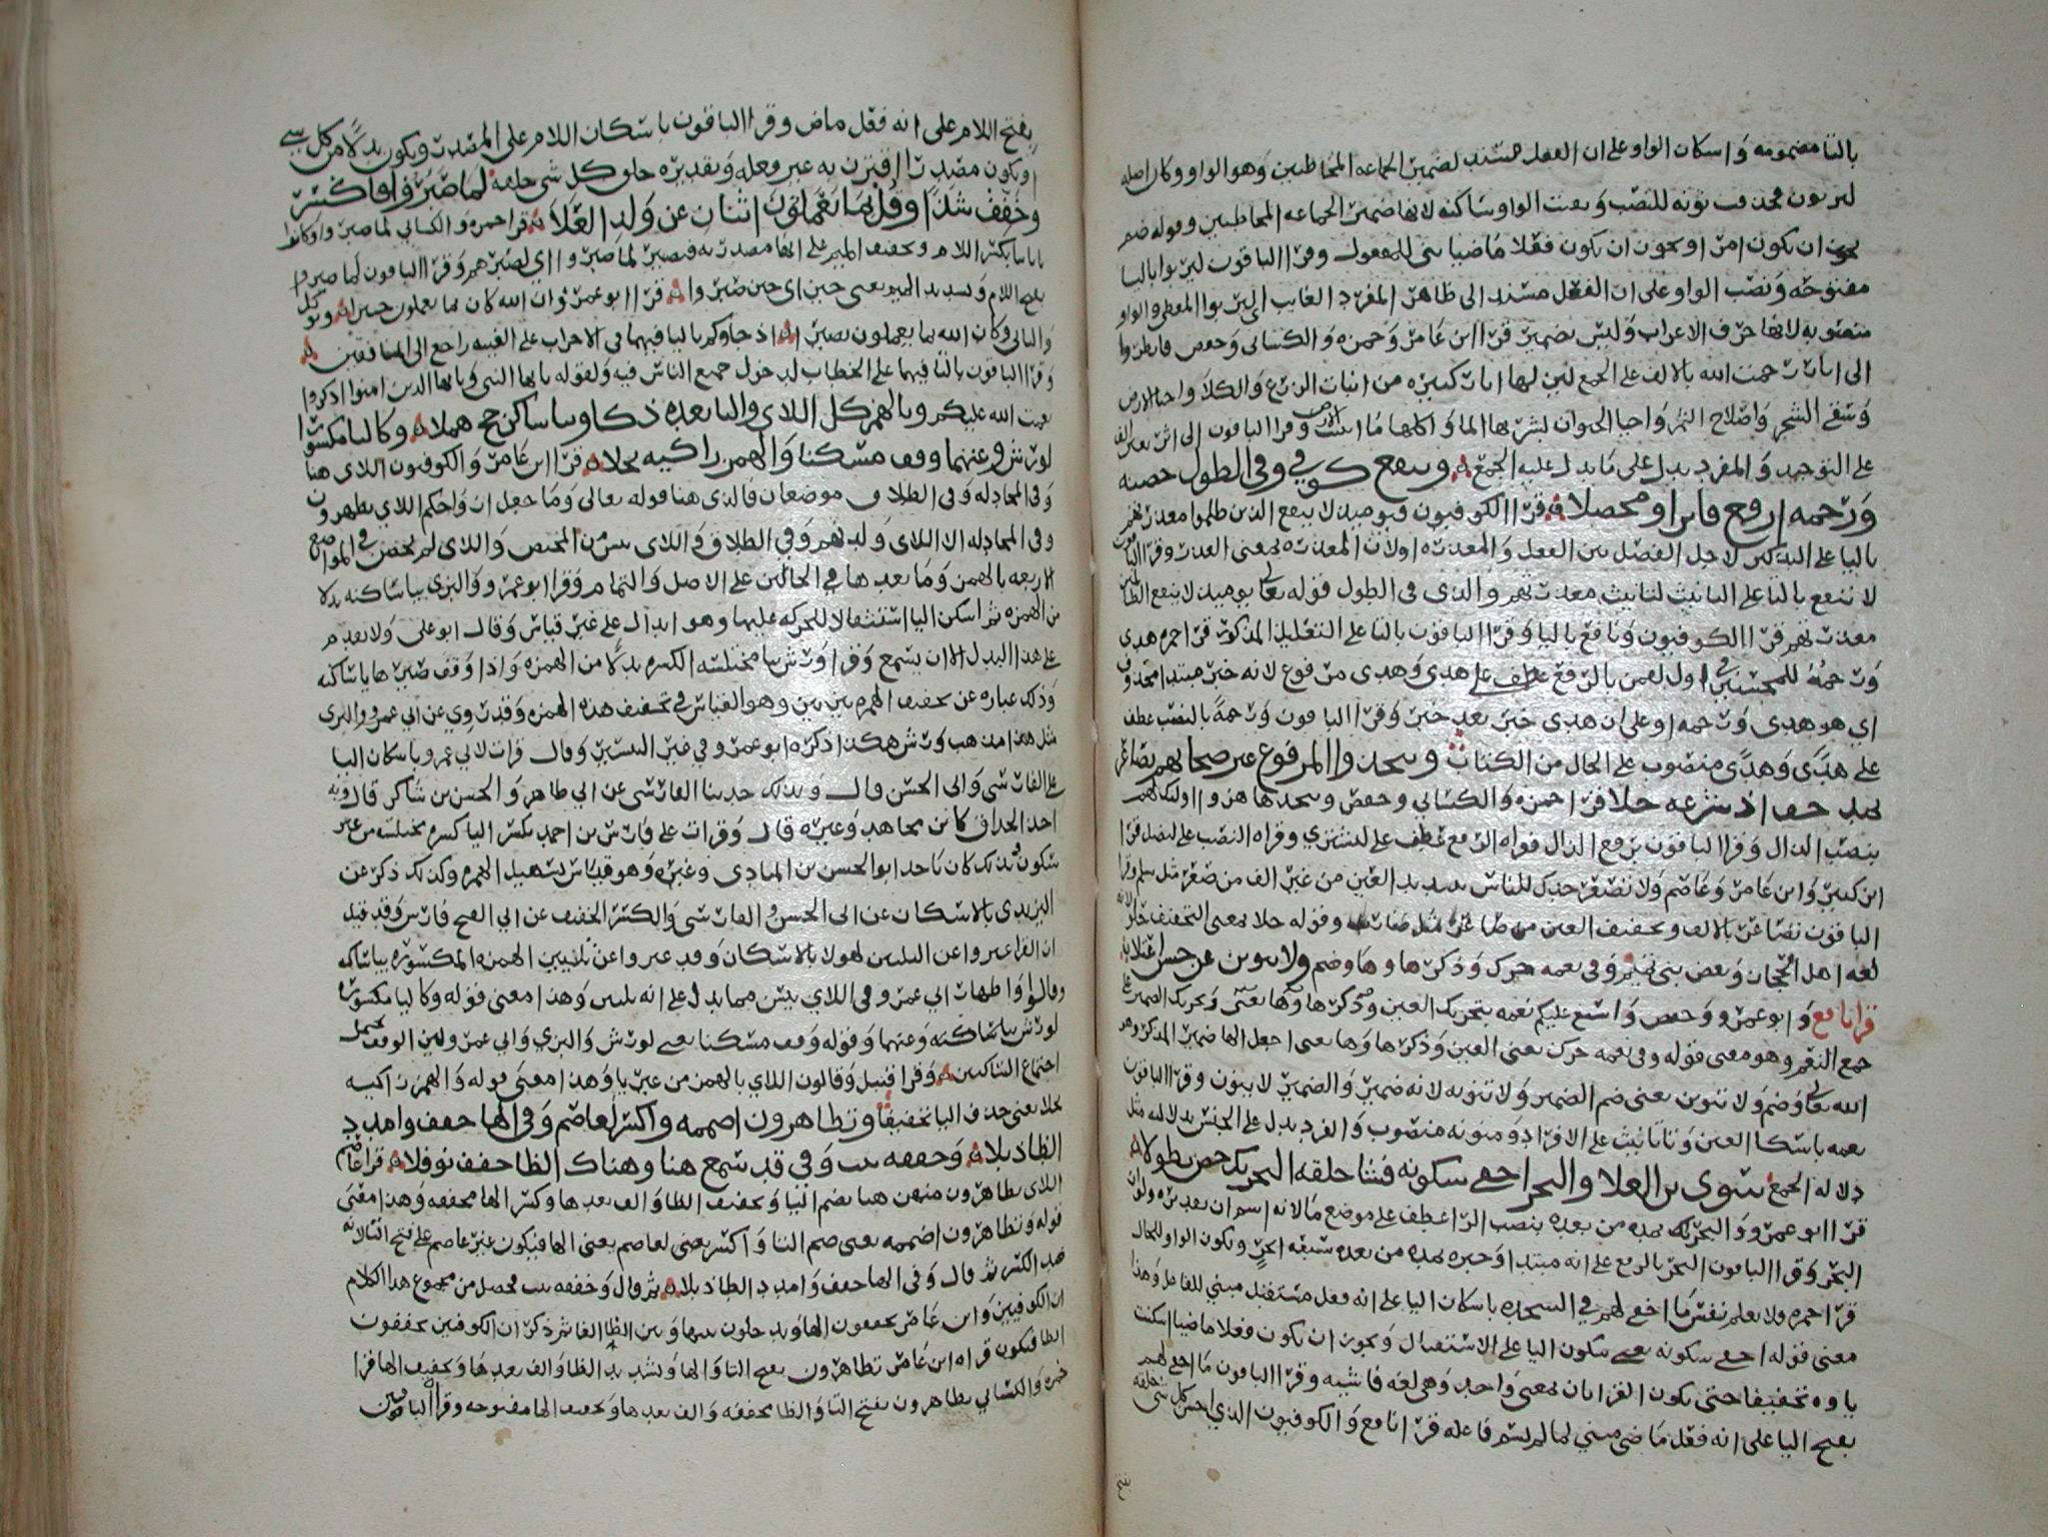 بالتا مضمومه واسكان الواو على ان الفعل مسند لضمير الجماعه المخاطبين وهو الواو وكان اصله
لتربون فحذفت نونه للنصب وبقيت الواو ساكنه لانها ضمير الجماعه المخاطبين وقوله ضم
يجوز ان يكون امرا ويجوز ان يكون فعلا ماضيا بنى للمفعول وقرا الباقون ليربوا باليا
مفتوحه ونصب الواو على ان الفعل مسند الى ظاهر المفرد الغايب اى ليربوا المعطى والواو
منصوبه لانها حرف الاعراب وليس بضمير قرا ابن عامر وحمزه والكسائى وحفص فانظروا
الى اثار رحمت الله بالالف على الجمع لين لها اثار كثيره من انبات الزرع والكلا واحيا الارض
وسقى الشجر واصلاح الثمر واحيا الحيوان بشربها الما واكلها ما انبتت الارض وقرا الباقون الى اثر بغير الف
على التوحيد والمفرد يدل على ما يدل عليه الجمع وينفع كوفي وفى الطول حصنه
ورحمه ارفع فايزا ومحصلا قرا الكوفيون فيوميذ لا ينفع الذين ظلموا معذرتهم
باليا على التذكير لاجل الفصل بين الفعل والمعذره اولان المعذره بمعنى العذر وقرا الباقون
لا تنفع بالتا على التانيث لتانيث معذرتهم والذى فى الطول قوله تعالى يوم لا ينفع الظالمين
معذرتهم قرا الكوفيون ونافع باليا وقرا الباقون بالتا على التعليل المذكور قرا حمزه هدى
ورحمة للمحسنين فى اول لقمن بالرفع عطف على هدى وهدى مرفوع لانه خبر مبتدا محذوف
اي هو هدى ورحمه او على ان هدى خبر بعد خبر وقرا الباقون ورحمة بالنصب عطف
على هدى وهدى منصوب على الحال من الكتاب ويتخذ والمرفوع غير صحابهم تصاعر
بمد خف اذ شرعه حلا قرا حمزه والكسائي وحفص ويتخذها هزوا اوليك لهم
بنصب الذال وقرا الباقون برفع الذال فقراه الرفع عطف على يشتري وقراه النصب على ليضل قرا
ابن كثير وابن عامر وعاصم ولا تصعر خدك للناس بتشديد العين من غير الف من صعر مثل سلم وقرا
الباقون تصاعر بالالف وتخفيف العين من صاعر مثل ضارب وقوله حلا بمعنى التخفيف حلو لانه
لغه اهل الحجاز وبعض بنى تميم وفى نعمه حرك وذكر هاوها وضم ولا تنوين عن حسن اعتلا
قرا نافع وابو عمرو وحفص واسبغ عليكم نعمه بتحريك العين وذكر هاوها يعنى وتحريك الضمير على
جمع النعم وهو معنى قوله وفى نعمه حرك يعنى العين وذكر هاوها يعنى اجعل الها ضمير المذكر وهو
الله تعالى وضم ولا تنوين يعنى ضم الضمير ولا تنونه لانه ضمير والضمير لا ينون وقرا الباقون
نعمه باسكان العين وتا تانيث على الافراد ومنونه منصوب والمفرد يدل على الجنس بدلالته مثل
دلاله الجمع سوى بن العلا والبحر اخفى سكونه فشا خلقه التحريك حصن تطولا
قرا ابو عمرو والبحر يمده من بعده بنصب الرا عطف على موضع ما لانه اسم ان تقديره ولو ان
البحر وقرا الباقون البحر بالرفع على انه مبتدا وخبره يمده من بعده سبعه ابحر وتكون الواو للحال
قرا حمزه ولا تعلم نفس ما اخفى لهم في السجده باسكان اليا على انه فعل مستقبل مبني للفاعل وهذا
معنى قوله اخفى سكونه يعنى سكون اليا على الاستقبال ويجوز ان تكون فعلا ماضيا اسكنت
ياوه تخفيفا حتى يكون القراتان بمعنى واحد وهى لغه فاشيه وقرا الباقون ما اخفى لهم
بفتح اليا على انه فعل ماضى مبني لما لم يسم فاعله قرا نافع والكوفيون الذي احسن كل شى خلقه
بفتح اللام على انه فعل ماض وقرا الباقون باسكان اللام على المصدر ويكون بدلا من كل شي
او يكون مصدرا اقترن به غير فعله وتقديره خلق كل شى خلقه لما صبروا فاكسر
وخفف شذا وقل بما يعملون اثنان عن ولد العلا قرا حمزه والكسائي لما صبروا وكانوا
باياتنا بكسر اللام وتخفيف الميم على انها مصدريه فيصير لما صبروا اي لصبرهم وقرا الباقون لما صبروا
بفتح اللام وتشديد الميم بمعنى حين اى حين صبروا قرا ابو عمرو ان الله كان بما يعملون خبيرا وتوكل
والثانى وكان الله بما يعملون بصيرا اذ جاوكم باليا فيهما فى الاحزاب على الغيبه راجع الى المنافقين
وقرا الباقون بالتا فيهما على الخطاب لدخول جميع الناس فيه ولقوله يايها النبى ويايها الذين امنوا اذكروا
نعمت الله عليكم وبالهمز كل اللاي واليا بعده ذكا وبيا ساكن حج هملا وكاليا مكسورا
لورش وعنهما وقف مسكنا والهمز زاكيه بجلا قرا ابن عامر والكوفيون اللاى هنا
وفى المجادله وفى الطلاق موضعان فالذى هنا قوله تعالى وما جعل ازواجكم اللاي تظهرون
وفى المجادله الا اللاى ولدنهم وفي الطلاق واللاى يىسن من المحيض واللاى لم يحضن في المواضع
الاربعه بالهمز وما بعدها في الحالين على الاصل والتمام وقرا ابو عمرو والبزي بيا ساكنه بدلا
من الهمزه ثم اسكن اليا استثقالا للحركه عليها وهو ابدال على غير قياس وقال ابو على ولا يقدم
على هذا البدل الا ان يسمع وقرا ورش بيا مختلسه الكسره بدلا من الهمزه واذا وقف صيرها يا ساكنه
وذلك عباره عن تخفيف الهمزه بين بين وهو القياس في تخفيف هذه الهمزه وقد روي عن ابي عمرو والبزى
مثل هذا مذهب ورش هكذا ذكره ابو عمرو في غير التيسير وقال قرات لابي عمرو باسكان اليا
على الفارسى وابى الحسن قال وبذلك حدثنا الفارسى عن ابى طاهر والحسن بن شاكر قال وبه
اخذ الحذاق كابن مجاهد وغيره قال وقرات على فارس بن احمد بكسر اليا كسره مختلسه من غير
سكون وبذلك كان ياخذ ابو الحسن بن المنادى وغيره وهو قياس تسهيل الهمزه وكذلك ذكر عن
اليزيدى بالاسكان عن ابى الحسن والفارسى والكسر الخفيف عن ابي الفتح فارس وقد قيل
ان القرا عبروا عن التليين لهولا بالاسكان وقد عبروا عن تليين الهمزه المكسوره بيا ساكنه
وقالوا واظهار ابي عمرو فى اللاي يىسن مما يدل على انه تليين وهذا معنى قوله وكاليا مكسوره
لورش بيا ساكنه وعنهما وقوله وقف مسكنا يعنى لورش والبزي وابي عمرو ولين الوقف يحتمل
اجتماع الساكنين وقرا قنبل وقالون اللاي بالهمز من غير يا وهذا معنى قوله والهمز زاكيه
بجلا يعنى حذف اليا تخفيفا وتظاهرون اضممه واكسر لعاصم وفى الها خفف وامدد
الظا ذبلا وخففه ثبت وفي قد سمع هنا وهناك الظا خفف نوفلا قرا عاصم
اللاى تظاهرون منهن هنا بضم التا وتخفيف الظا والف بعدها وكسر الها مخففه وهذا معنى
قوله وتظاهرون اضممه يعنى ضم التا واكسر يعنى لعاصم يعنى الها فيكون غير عاصم على فتح التا لانه
ضد الكسر ثم قال وفى الها خفف وامدد الظا ذبلا ثم قال وخففه ثبت فحصل من مجموع هذا الكلام
ان الكوفيين وابن عامر يخففون الها ويدخلون بينها وبين الظا الفا ثم ذكر ان الكوفيين يخففون
الظا فيكون قراه ابن عامر تظاهرون بفتح التا والها وتشديد الظا والف بعدها وتخفيف الها قرا
حمزه والكسائي تظاهرون بفتح التا والظا مخففه والف بعدها وتخفيف الها مفتوحه وقرا الباقون